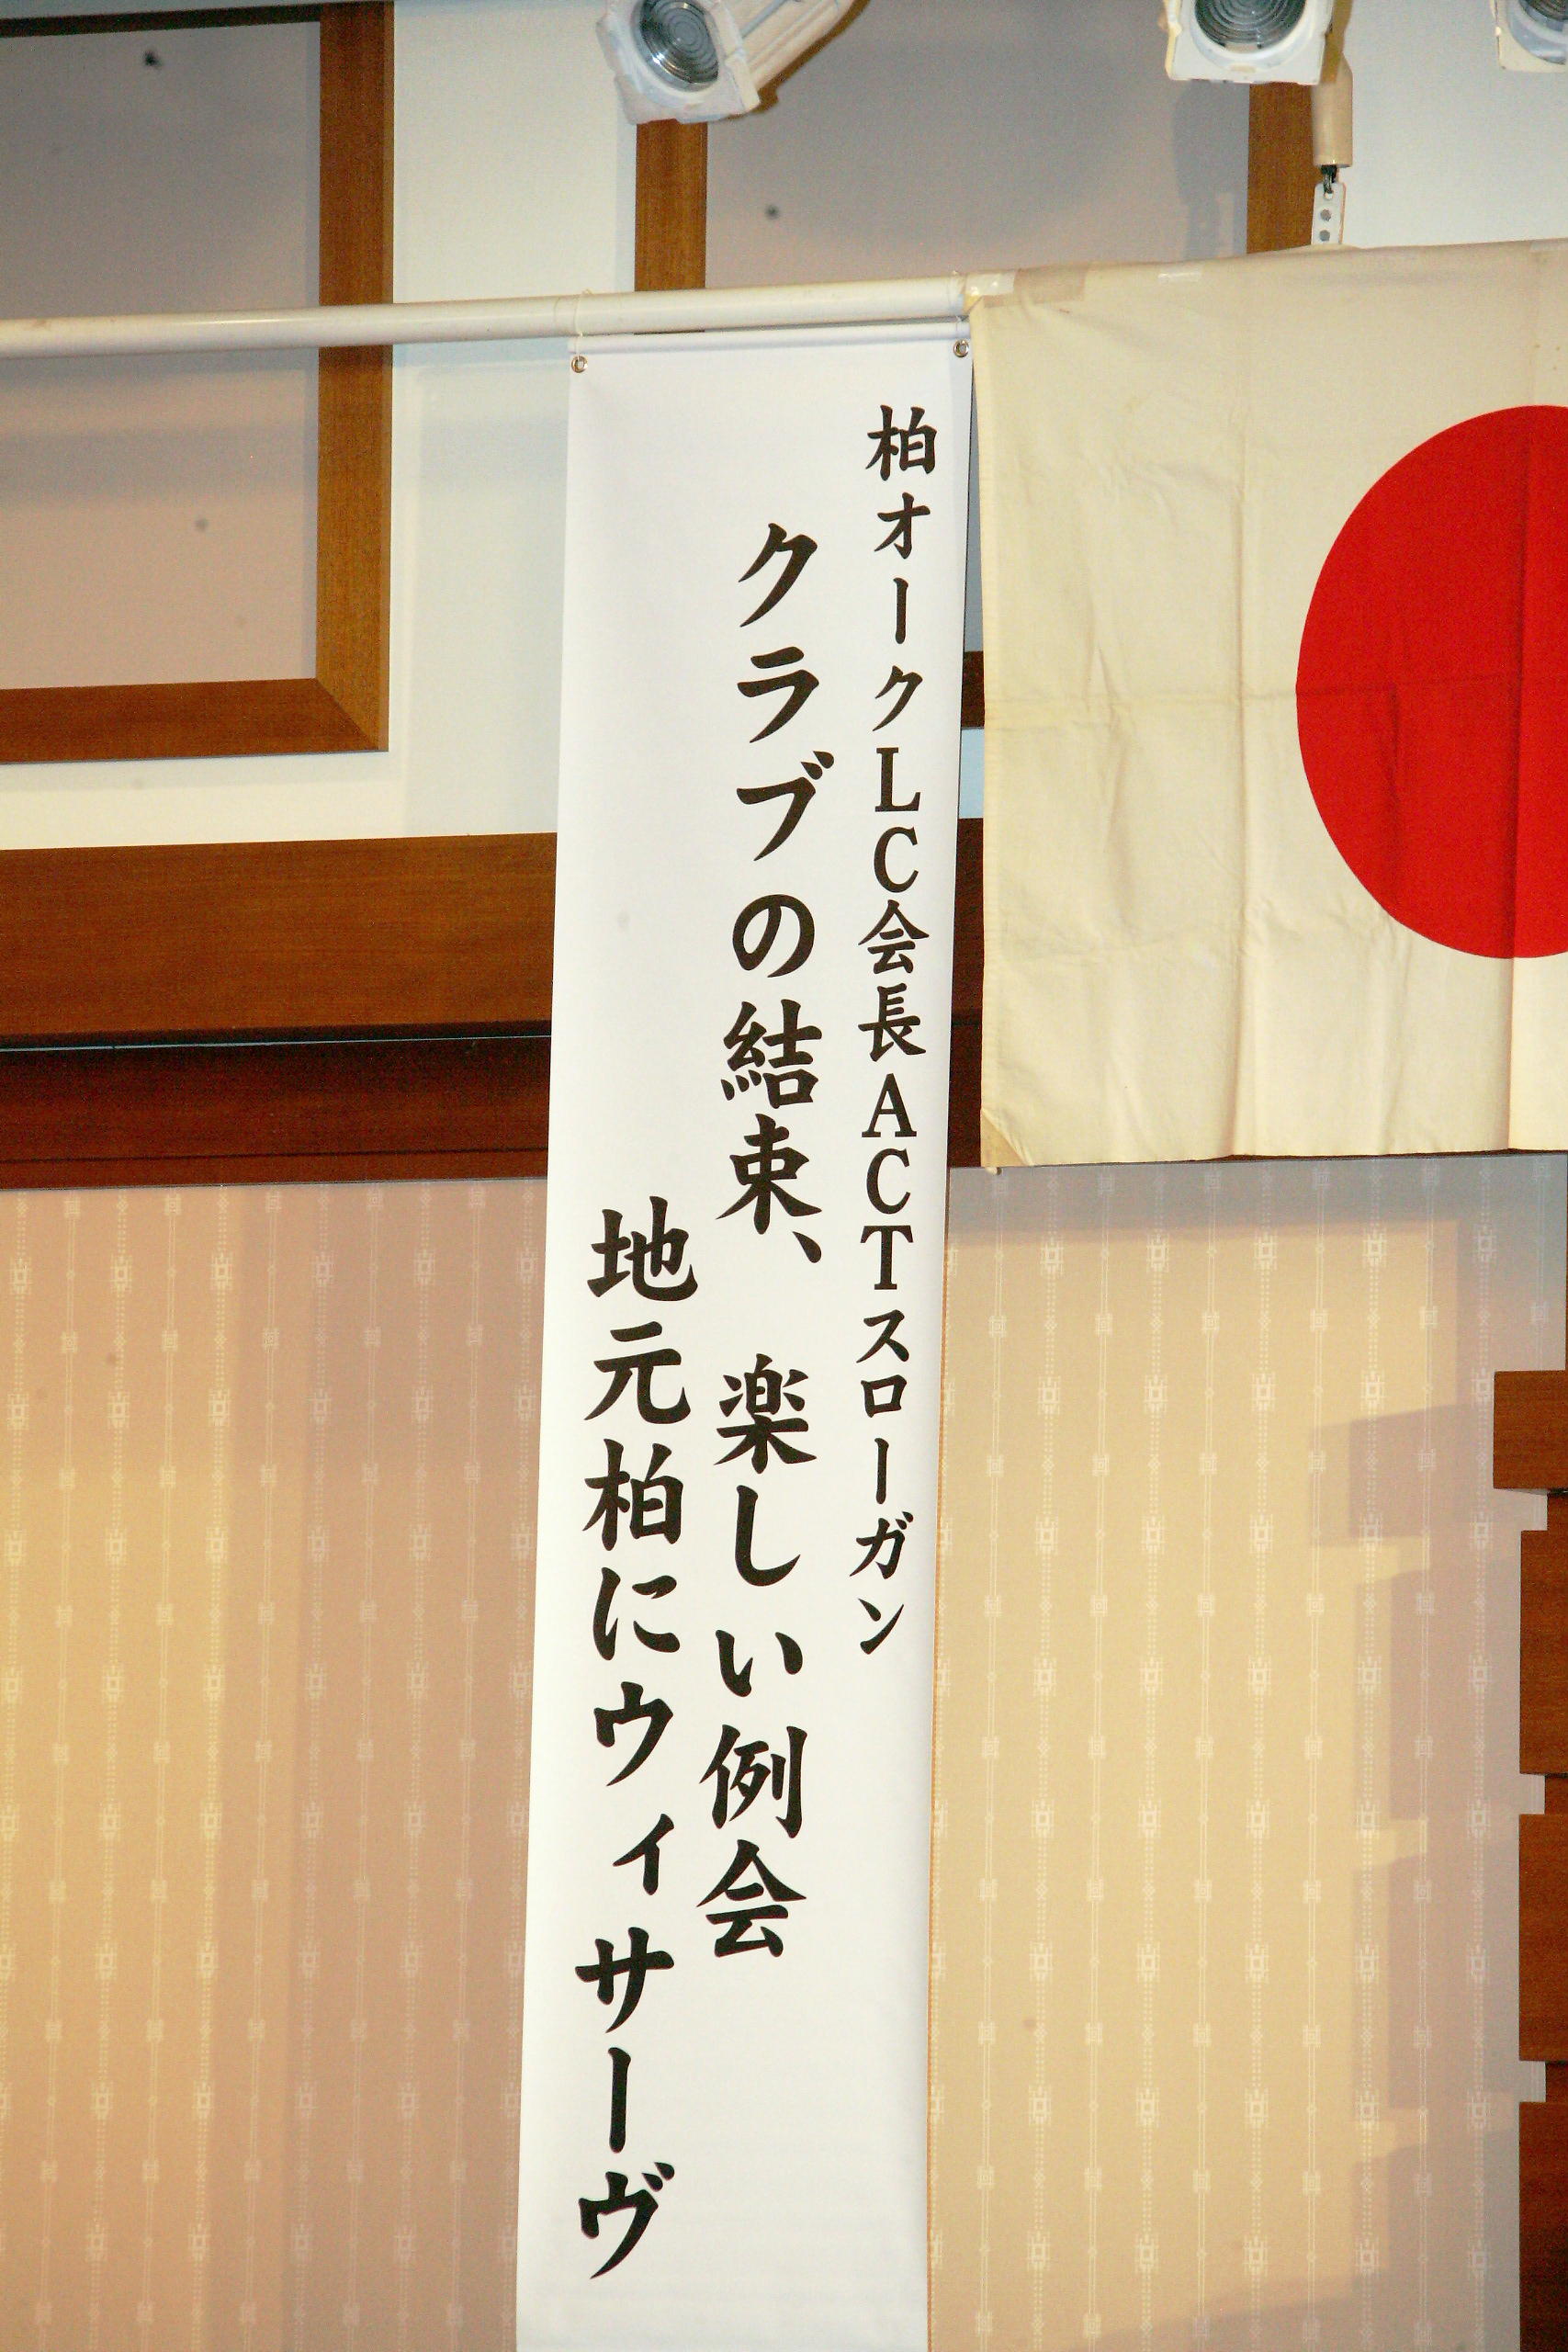 柏オークLC会長ACTスローガン
クラブの結束、楽しい例会
地元柏にウィサーヴ